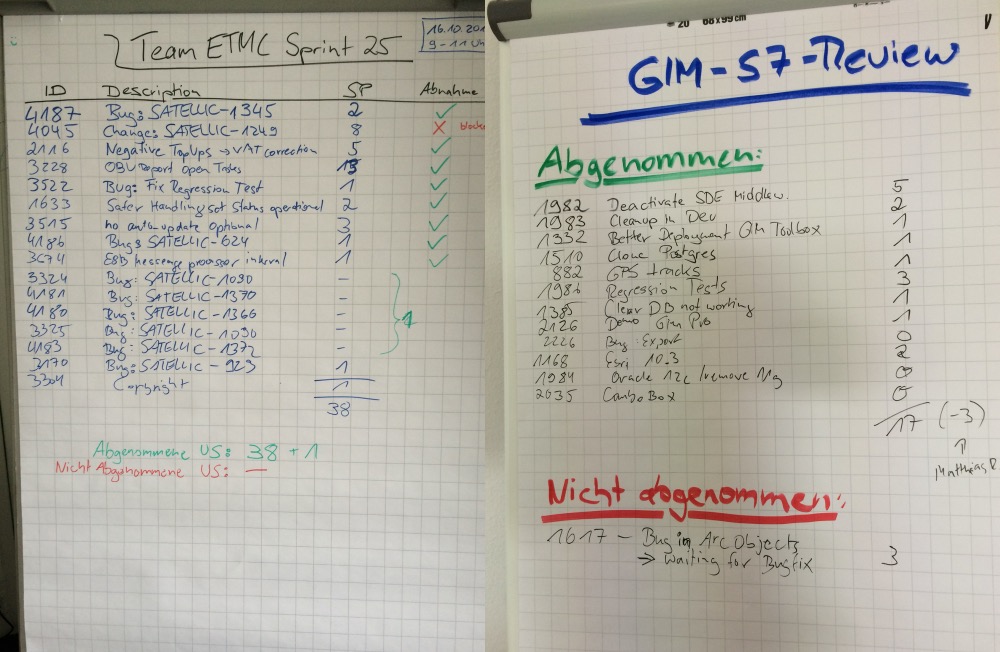 Team ETMC Sprint 25
16.10.201
9-11 Uh
ID Description SP Abnahme
4187 Bug: SATELLIC-1345 2 ✓
4045 Change: SATELLIC-1249 8 X blocke
2116 Negative TopUps → VAT correction 5 ✓
3228 OBU Report Open Tasks 13 ✓
3522 Bug: Fix Regression Test 1 ✓
1633 Safer Handling set Status operational 2 ✓
3515 no auto-update optional 3 ✓
4186 Bug: SATELLIC-624 1 ✓
3674 ESB message processor interval 1 ✓
3324 Bug: SATELLIC-1090 -
4181 Bug: SATELLIC-1370 -
4180 Bug: SATELLIC-1366 - 1
3325 Bug: SATELLIC-1090 -
4183 Bug: SATELLIC-1372 -
3170 Bug: SATELLIC-923 1
3304 Copyright 1
38
Abgenommene US: 38 + 1
Nicht Abgenommene US: —
20 68x99cm
GIM-S7-Review
Abgenommen:
1982 Deactivate SDE Middlew. 5
1983 Cleanup in Dev 2
1332 Better Deployment GIM Toolbox 1
1510 Clone Postgres 1
882 GPS tracks 1
1986 Regression Tests 3
1385 Clear DB not working 1
2126 Demo Gim Pro 1
2226 Bug: Export 0
1168 Esri 10.3 2
1984 Oracle 12c /remove 11g 0
2035 ComboBox 0
17 (-3)
↑
Matthias
Nicht abgenommen:
1617 - Bug in ArcObjects
→ waiting for Bugfix 3